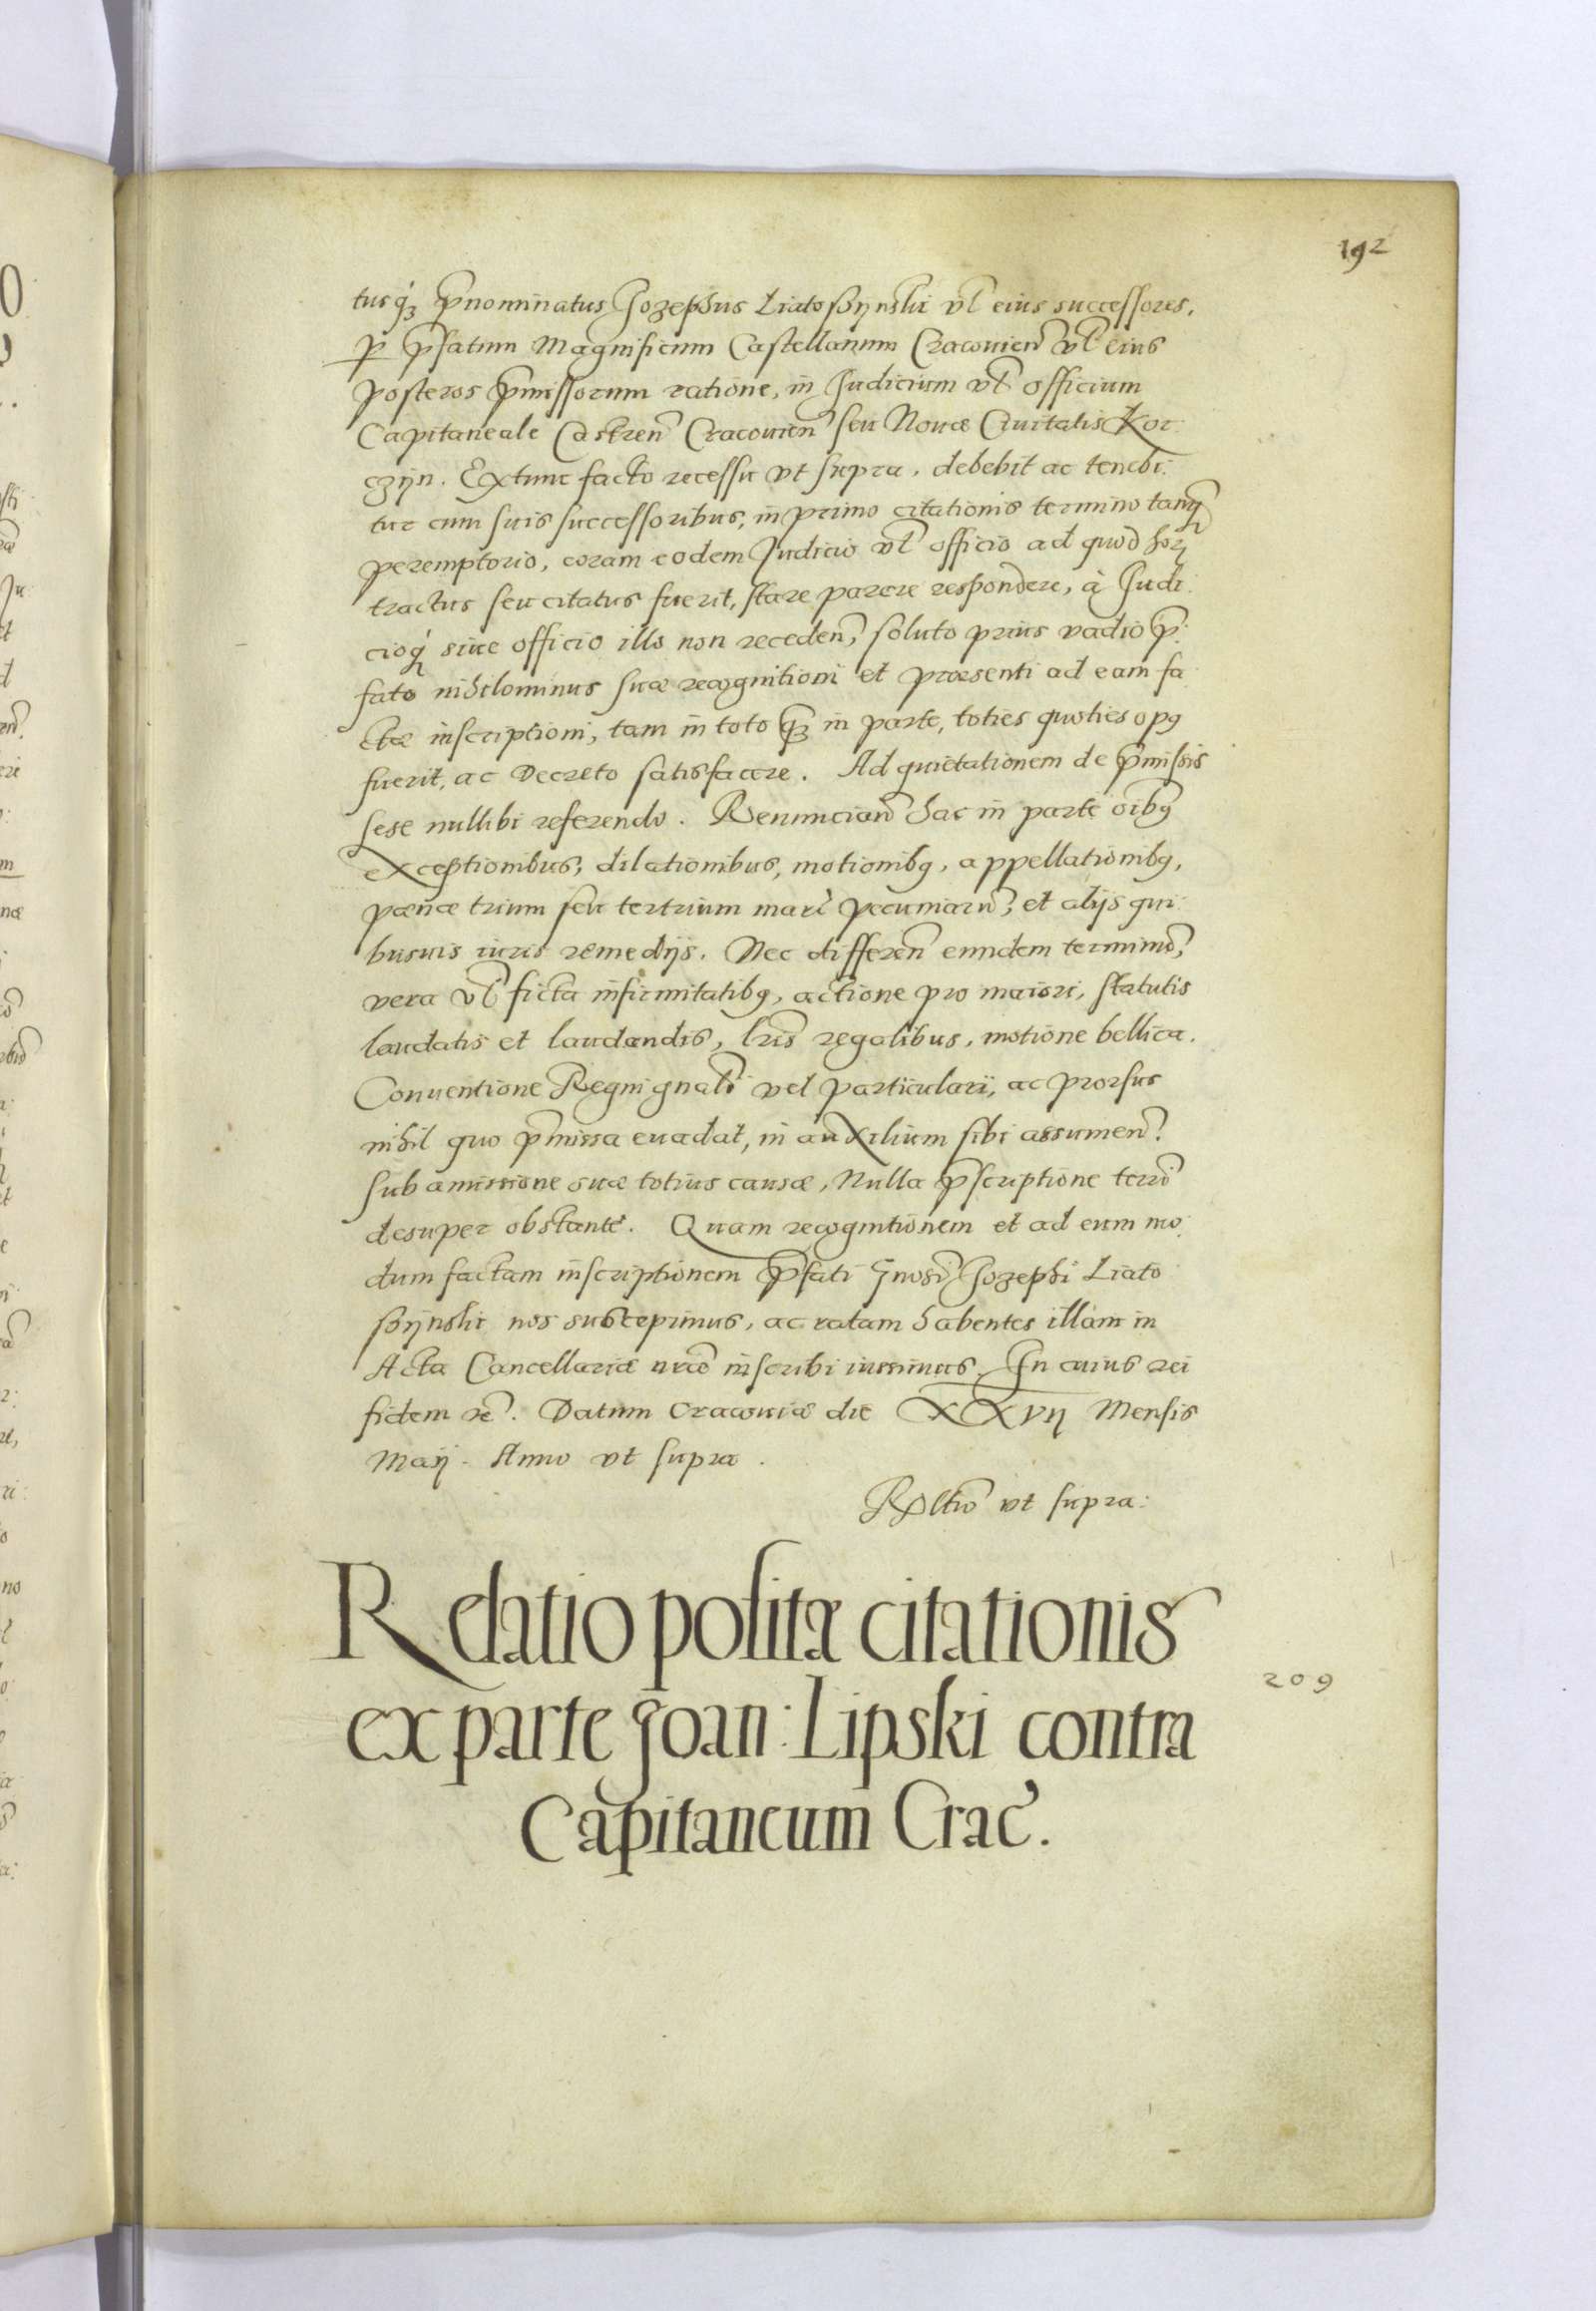 192
tusq́3 p̃nominatus Jozephus Liatoſzijnski vl̃ eius successores,
p p̃fatum Magnificum Castellanum Cracovieñ vl̃ eius
posteros p̃missorum ratione, in Judicium vl̃ officium
Capitaneale Castreñ Cracovieñ seu Novæ Civitatis Kor:
czijn. Extunc facto recessu vt supra, debebit ac tenebi:
tur cum suis successoribus, in primo citationis termino tanq̃
peremptorio, coram eodem Judicio vl̃ officio ad quod hor̃
tractus seu citatus fuerit, stare parere respondere, à Judi:
cioq́ sive officio illo non recedeñ, soluto prius vadio p̃:
fato nihilominus suæ recognitioni et præsenti ad eam fa:
ctæ inscriptioni, tam in toto q̃3 in parte, toties quoties opq
fuerit, ac Decreto satisfacere. Ad quietationem de p̃missis
sese nullibi referendo. Renunciañ hac in parte oĩbq
exceptionibus, dilationibus, motionibq, appellationibq,
pænæ trium seu tertrium mar̃ pecuniarũ, et alijs qui:
busvis iuris remedijs. Nec differeñ eundem terminũ,
vera vl̃ ficta infirmitatibq, actione pro maiori, statutis
laudatis et laudandis, lr̃is regalibus, motione bellica.
Conventione Regni gnãli vel particulari, ac prorsus
nihil quo p̃missa evadat, in auxilium sibi assumeñ.
sub amissione suæ totius causæ, Nulla p̃scriptione terrĩ
desuper obstante. Quam recognitionem et ad eum mo:
dum factam inscriptionem p̃fati Gnosĩ Jozephi Liato
ſzijnski nos suscepimus, ac ratam habentes illam in
Acta Cancellariæ nr̃æ inscribi iussimus. In cuius rei
fidem etc̃. Datum Cracoviæ die XXvij Mensis
Maij. Anno vt supra.
Rl̃tio vt supra:
Relatio positæ citationis
ex parte Joan: Lipski contra
209
Capitaneum Crac̃.